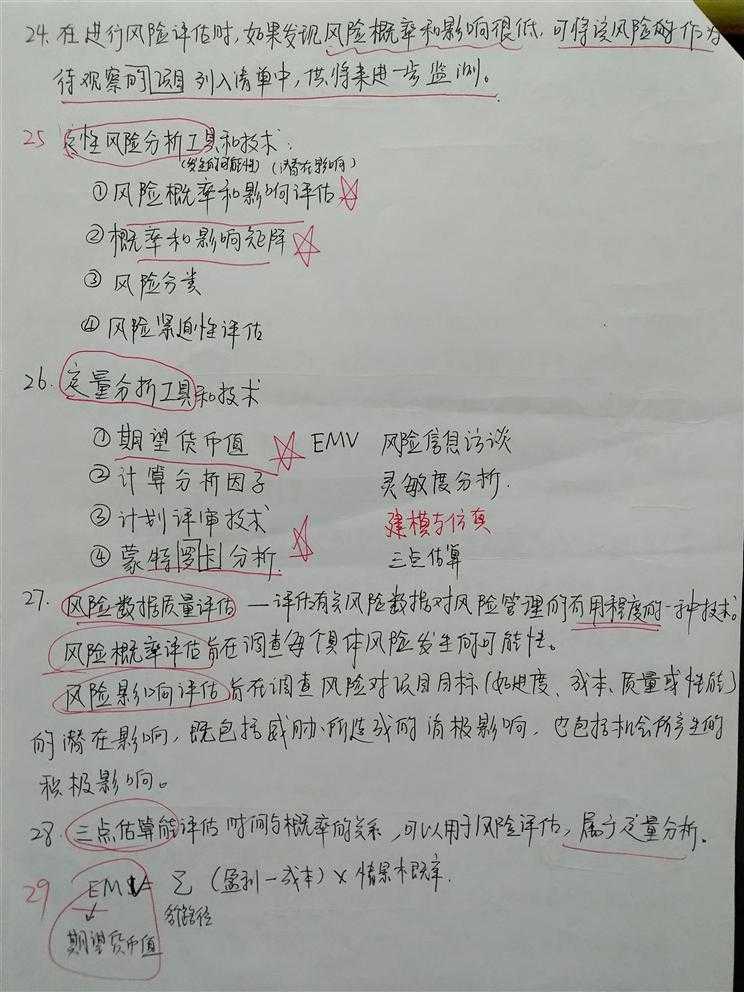 24. 在进行风险评估时,如果发现风险概率和影响很低,可将该风险作为
待观察的项目列入清单中,供将来进一步监测。
25 定性风险分析工具和技术:
(发生的可能性) (潜在影响)
①风险概率和影响评估
②概率和影响矩阵
③ 风险分类
④ 风险紧迫性评估
26. 定量分析工具和技术
①期望货币值 EMV 风险信息访谈
②计算分析因子 灵敏度分析.
③计划评审技术 建模与仿真
④ 蒙特罗卡分析. 三点估算
27. 风险数据质量评估 — 评估有关风险数据对风险管理的有用程度的一种技术。
风险概率评估旨在调查每个具体风险发生的可能性。
风险影响评估旨在调查风险对项目目标(如进度、成本、质量或性能)
的潜在影响,既包括威胁所造成的消极影响,也包括机会所产生的
积极影响。
28. 三点估算能评估时间与概率的关系,可以用于风险评估,属于定量分析。
29 EMV= Σ (盈利-成本)×情景概率.
期望货币值